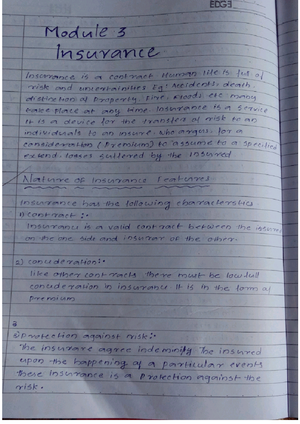 EDGE
Module 3
Insurance
Insurance is a contract Human life is full of
risk and uncertainities Eg: Accidents, death
distruction of property, Fire, Floods etc many
take place at any time. Insurance is a service
it is a device for the transfer of risk to an
individuals to an insure. who agrees for a
consideration (Premium) to assume to a specified
extend losses suffered by the insured
Nature of Insurance Features
Insurance has the following characteristics
1) contract :-
Insurance is a valid contract between the insured
on the one side and insurar of the other.
2) consideration:-
like other contracts there must be lawfull
consideration in insurance it is in the form of
premium
3) protection against risk:-
The insurare agree indemnify The insured
upon the happening of a particular events
there insurance is a protection against the
risk.